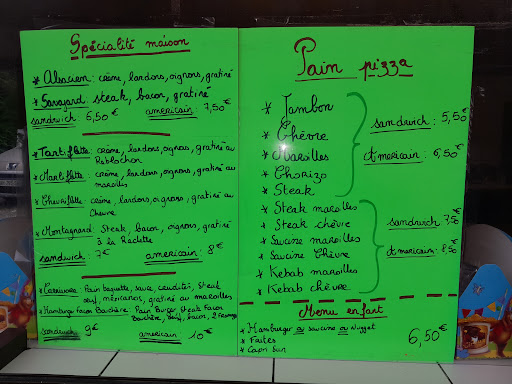 Spécialité maison
* Alsacien : crème, lardons, oignons, gratiné
* Savoyard : steak, bacon, gratiné
sandwich : 6,50€ americain : 7,50€
* Tartiflette : crème, lardons, oignons, gratiné au
Reblochon
* Marliflette : crème, lardons, oignons, gratiné au
maroilles
* Chevriflette : crème, lardons, oignons, gratiné au
Chèvre
* Montagnard : Steak, bacon, oignons, gratiné
à la Raclette
sandwich : 7€ americain : 8€
* Carnivore : Pain baguette, sauce, crudités, Steak
oeuf, mexicanos, gratiné au maroilles
* Hamburger Facon Bouchère : Pain Burger Steak Facon
Bouchère, oeuf, bacon, 2
sandwich 9€ americain 10€
Pain pizza
* Jambon
* Chèvre
* Maroilles
* Chorizo
* Steak
sandwich : 5,50€
Americain : 6,50€
* Steak maroilles
* Steak chèvre
* Saucisse maroilles
* Saucisse Chèvre
* Kebab maroilles
* Kebab chèvre
sandwich : 7,50€
Americain : 8,50€
Menu enfant
* Hamburger ou saucisse ou Nugget
* Frites
* Capri sun
6,50€